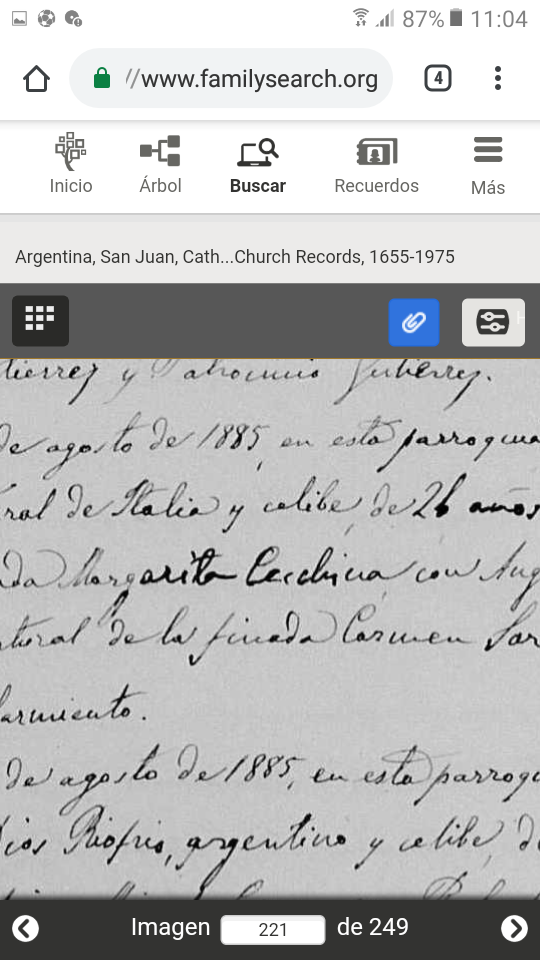 87% 11:04
//www.familysearch.org
4
Inicio Árbol Buscar Recuerdos Más
Argentina, San Juan, Cath...Church Records, 1655-1975
tierrez y Patrocinio Gutierrez.
de agosto de 1885, en esta parroquia
ral de Italia y celibe, de 26 años
da Margarita Cecchina con Aug
tural de la finada Carmen Sar
Sarmiento.
de agosto de 1885, en esta parroqu
ios Riofrio, argentino y celibe, d
Imagen 221 de 249